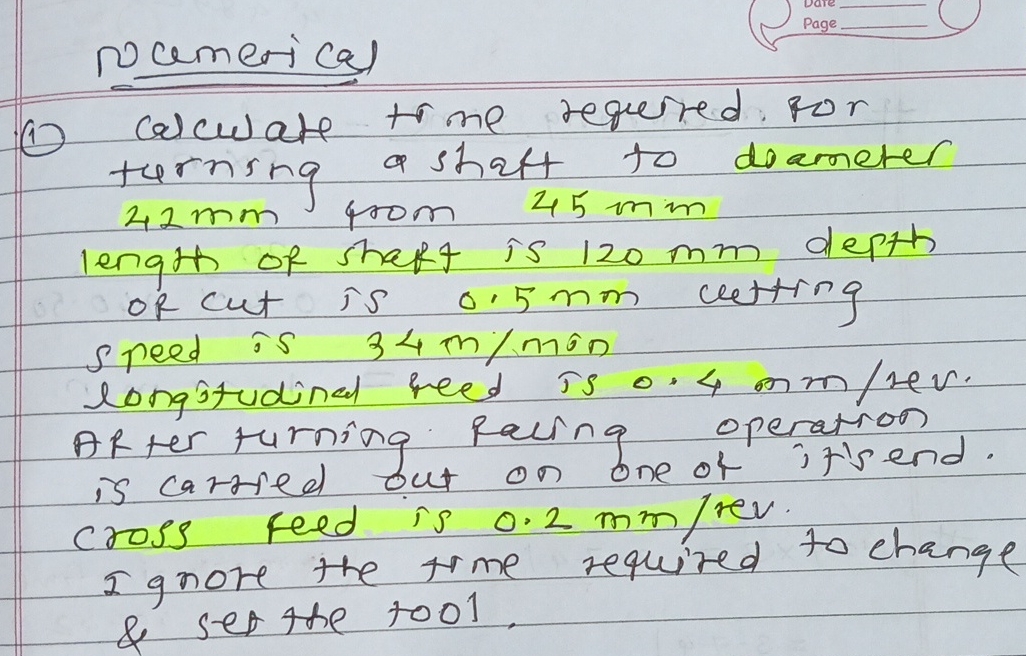 Date
Page
Numerical
① Calculate time required. For
turning a shaft to diameter
42 mm from 45 mm
length of shaft is 120 mm depth
of cut is 0.5 mm cutting
speed is 34 m/min
longitudinal feed is 0.4 mm/rev.
After turning facing operation
is carried out on one of it's end.
cross feed is 0.2 mm/rev.
Ignore the time required to change
& set the tool.